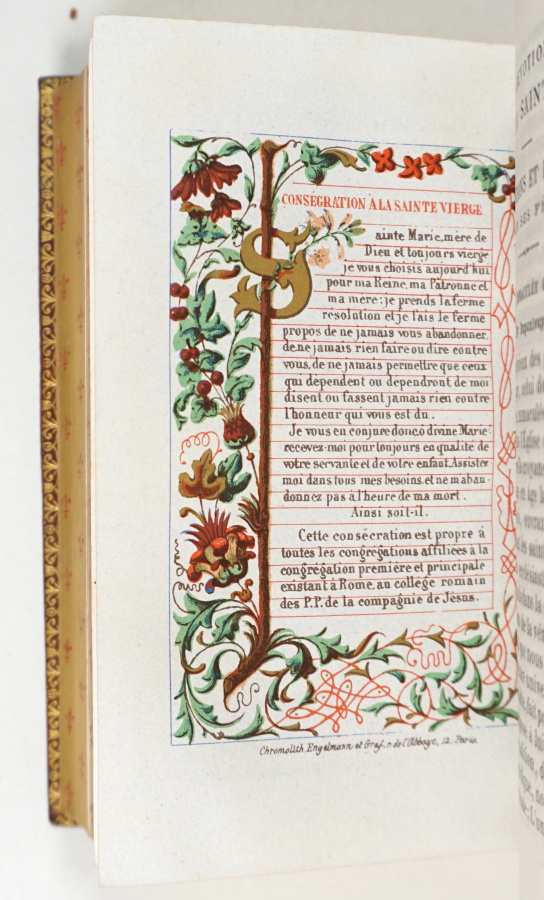 CONSÉGRATION À LA SAINTE VIERGE
Sainte Marie, mère de
Dieu et toujours vierge
je vous choisis aujourd'hui
pour ma Reine, ma Patronne et
ma mere: je prends la ferme
résolution et je fais le ferme
propos de ne jamais vous abandonner,
de ne jamais rien faire ou dire contre
vous, de ne jamais permettre que ceux
qui dépendent ou dépendront de moi
disent ou fassent jamais rien contre
l'honneur qui vous est du.
Je vous en conjure donc, ô divine Marie
recevez-moi pour toujours en qualité de
votre servante et de votre enfant. Assistez
moi dans tous mes besoins, et ne m'aban-
donnez pas à l'heure de ma mort.
Ainsi soit-il.
Cette consécration est propre à
toutes les congrégations affiliées a la
congrégation première et principale
existant à Rome, au collége romain
des P.P. de la compagnie de Jésus.
Chromolith. Engelmann et Graf, r. de l'Abbaye, 12. Paris.